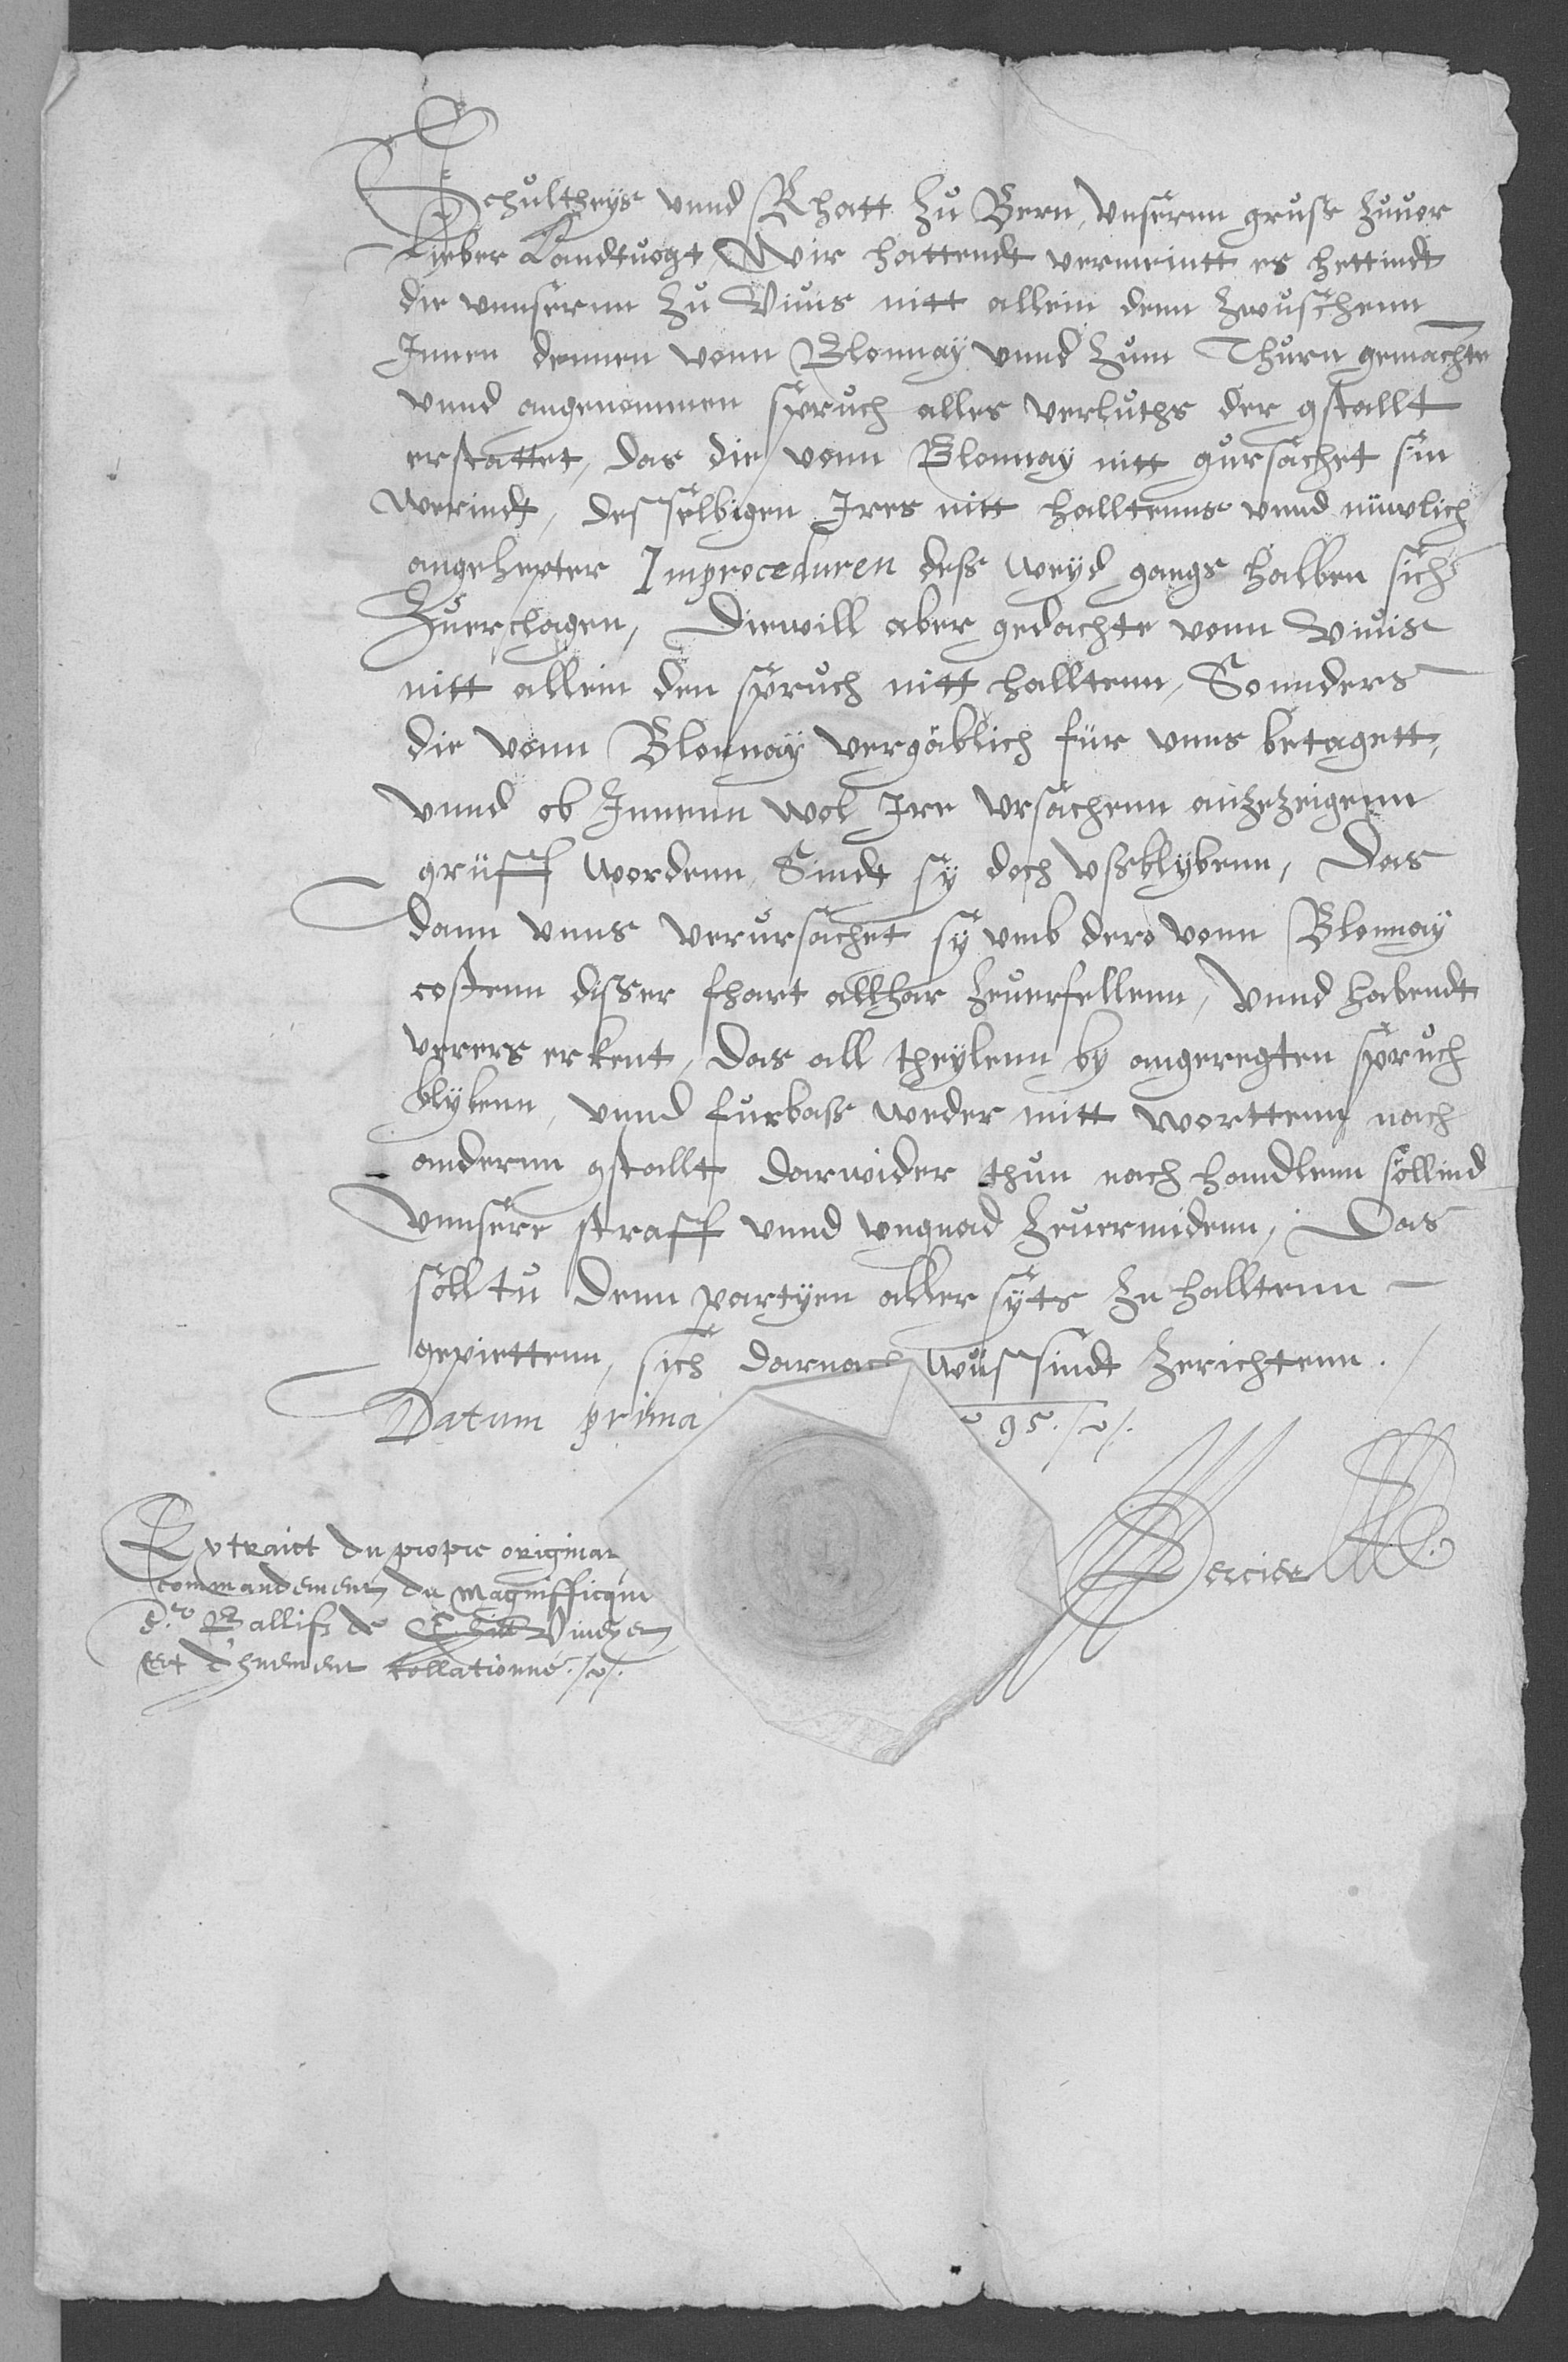 Schultheys vnnd Rhatt zu Bern, vnsernn gruss zuuor
Lieber Landtuogt, Wir hattendt vermeintt es hettindt
die vnnsernn zu Viuis nitt allein denn zwuschenn
Innen dennen vonn Blonnay vnnd zum Thurn gemachte
vnnd angenommen spruch alles verluths der gstallt
erstattet, das die vonn Blonnay nitt gursachet sin
werindt, desselbigen Ires nitt halltenns vnnd nüwlich
angehepter Improceduren dess weyd gangs halben sich
Zuerclagen, Diewill aber gedachte vonn Viuis
nitt allein den spruch nitt halltenn, Sonnders
die vonn Blonnaÿ vergäblich für vnns betagett,
vnnd ob Innenn wol Ire vrsachenn anzezeigenn
grüfft wordenn, Sindt sÿ doch vssblybenn, Das
dann vnns verursachet sÿ vmb dero vonn Blonnaÿ
costenn disser fhart allhar zeuerfellenn, Vnnd habendt
verers erkent, das all theylenn by angeregten spruch
blybenn, vnnd furbass weder mitt worttenn noch
andernn gstallt darwider thun noch handlenn söllind
vnnsere straff vnnd vngnad zeuermidenn, Das
söll tu denn partyen aller sÿts zu halltenn
gepiettenn, sich darnach wüssindt zerichtenn.
Datum prima 95.
Extraict du propre originar
commandement du magnifficque
Sr. Ballifz de Chill Vineyen
Et dhuement collationné.
Dercier